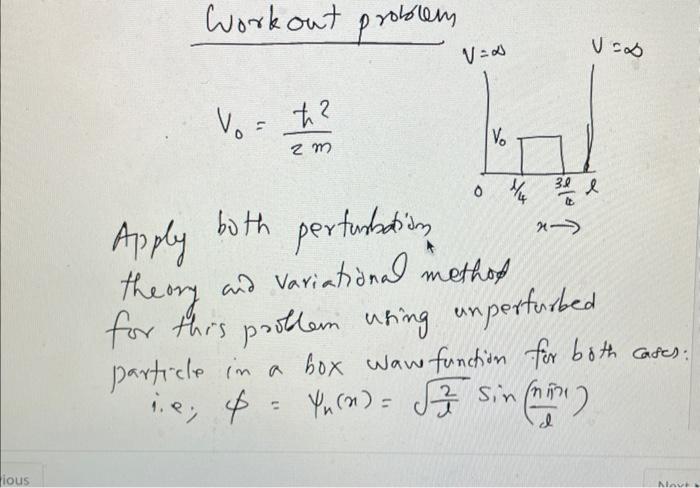 Workout problem
V=∞
V=∞
V₀ = ħ²
2m
V₀
0 l/4 3l/4 l
x→
Apply both perturbation
theory and variational method
for this problem using unperturbed
particle in a box wavefunction for both cases:
i.e; ϕ = ψₙ(x) = √2/l sin(nπx/l)
ious